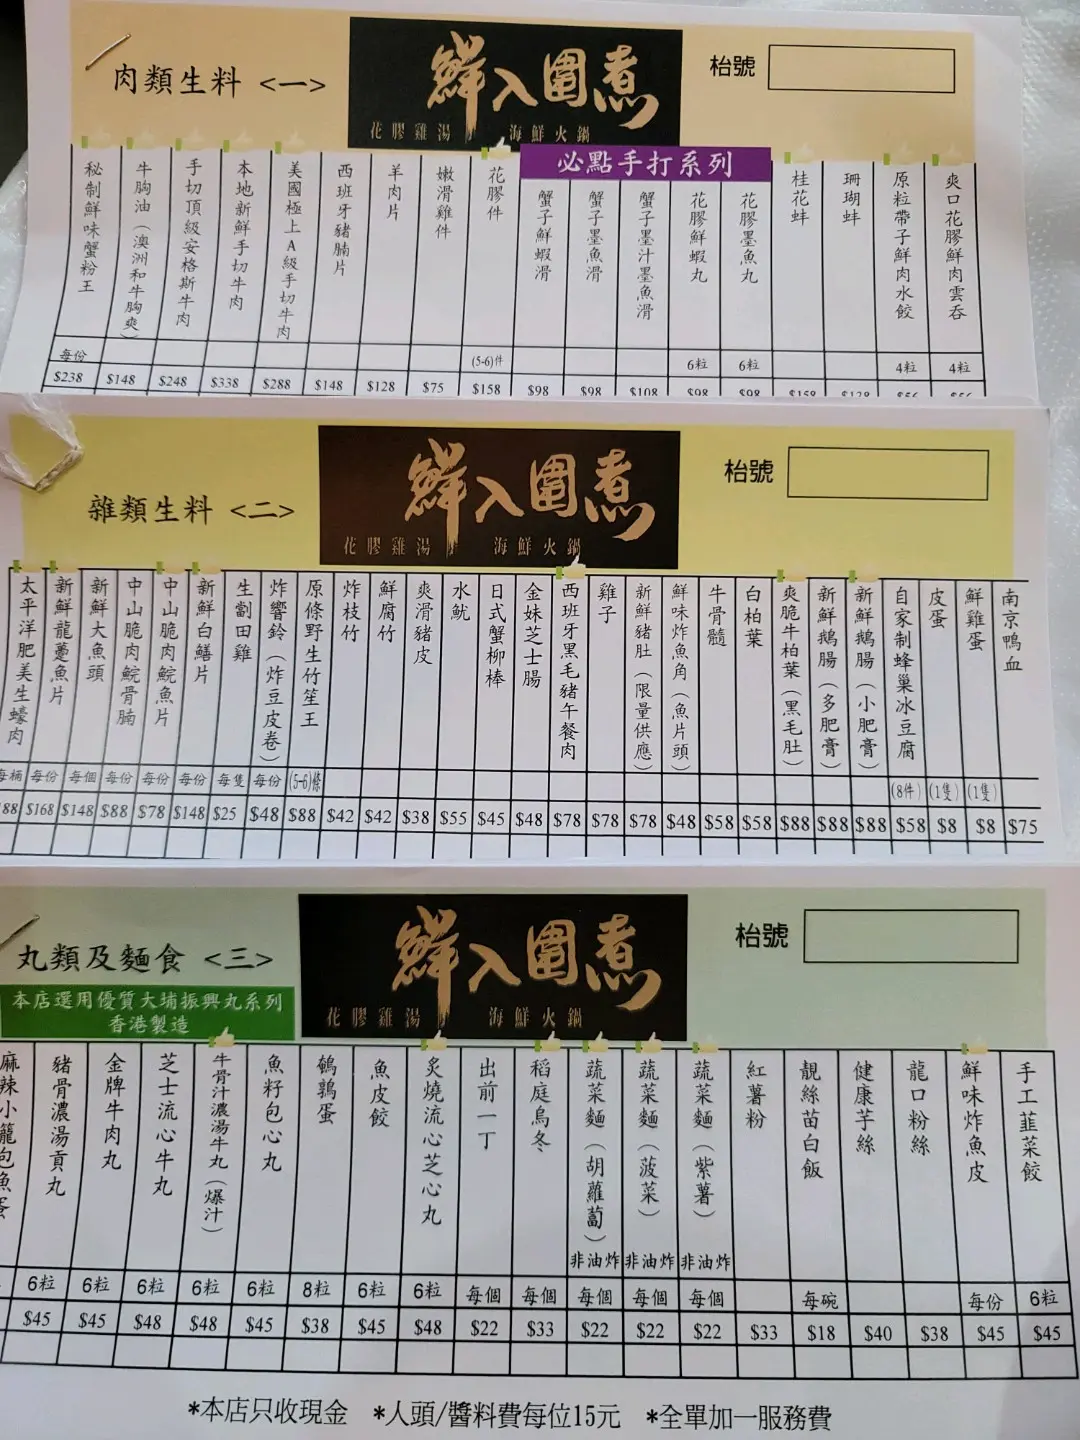 肉類生料 <一>
鮮入圍煮
花膠雞湯 海鮮火鍋
枱號
必點手打系列
秘制鮮味蟹粉王 每份 $238
牛胸油（澳洲和牛胸爽） $148
手切頂級安格斯牛肉 $248
本地新鮮手切牛肉 $338
美國極上A級手切牛肉 $288
西班牙豬腩片 $148
羊肉片 $128
嫩滑雞件 $75
花膠件 (5-6)件 $158
蟹子鮮蝦滑 $98
蟹子墨魚滑 $98
蟹子墨汁墨魚滑 $108
花膠鮮蝦丸 6粒 $98
花膠墨魚丸 6粒 $98
桂花蚌 $158
珊瑚蚌 $128
原粒帶子鮮肉水餃 4粒 $56
爽口花膠鮮肉雲吞 4粒 $56
雜類生料 <二>
鮮入圍煮
花膠雞湯 海鮮火鍋
枱號
太平洋肥美生蠔肉 每桶 88
新鮮龍躉魚片 每份 $168
新鮮大魚頭 每個 $148
中山脆肉鯇骨腩 每份 $88
中山脆肉鯇魚片 每份 $78
新鮮白鱔片 每份 $148
生劏田雞 每隻 $25
炸響鈴（炸豆皮卷） 每份 $48
原條野生竹笙王 (5-6)條 $88
炸枝竹 $42
鮮腐竹 $42
爽滑豬皮 $38
水魷 $55
日式蟹柳棒 $45
金妹芝士腸 $48
西班牙黑毛豬午餐肉 $78
雞子 $78
新鮮豬肚（限量供應） $78
鮮味炸魚角（魚片頭） $48
牛骨髓 $58
白柏葉 $58
爽脆牛柏葉（黑毛肚） $88
新鮮鵝腸（多肥膏） $88
新鮮鵝腸（小肥膏） $88
自家制蜂巢冰豆腐 (8件) $58
皮蛋 (1隻) $8
鮮雞蛋 (1隻) $8
南京鴨血 $75
丸類及麵食 <三>
本店選用優質大埔振興丸系列
香港製造
鮮入圍煮
花膠雞湯 海鮮火鍋
枱號
麻辣小籠包魚蛋
豬骨濃湯貢丸 6粒 $45
金牌牛肉丸 6粒 $45
芝士流心牛丸 6粒 $48
牛骨汁濃湯牛丸（爆汁） 6粒 $48
魚籽包心丸 6粒 $45
鵪鶉蛋 8粒 $38
魚皮餃 6粒 $45
炙燒流心芝心丸 6粒 $48
出前一丁 每個 $22
稻庭烏冬 每個 $33
蔬菜麵（胡蘿蔔） 非油炸 每個 $22
蔬菜麵（菠菜） 非油炸 每個 $22
蔬菜麵（紫薯） 非油炸 每個 $22
紅薯粉 $33
靚絲苗白飯 每碗 $18
健康芋絲 $40
龍口粉絲 $38
鮮味炸魚皮 每份 $45
手工韮菜餃 6粒 $45
*本店只收現金 *人頭/醬料費每位15元 *全單加一服務費